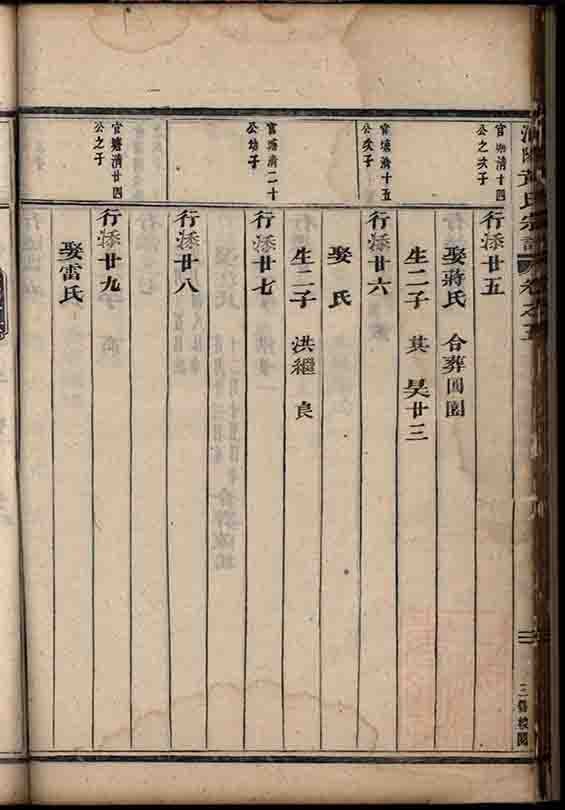 黃氏宗譜
卷之五
官塘清十四
公之次子
行添廿五
娶蔣氏 合葬囬園
生二子 其 昊廿三
官塘清十五
公次子
行添廿六
娶 氏
生二子 洪繼 良
官塘清二十
公幼子
行添廿七
行添廿八
官塘清廿四
公之子
行添廿九
娶雷氏